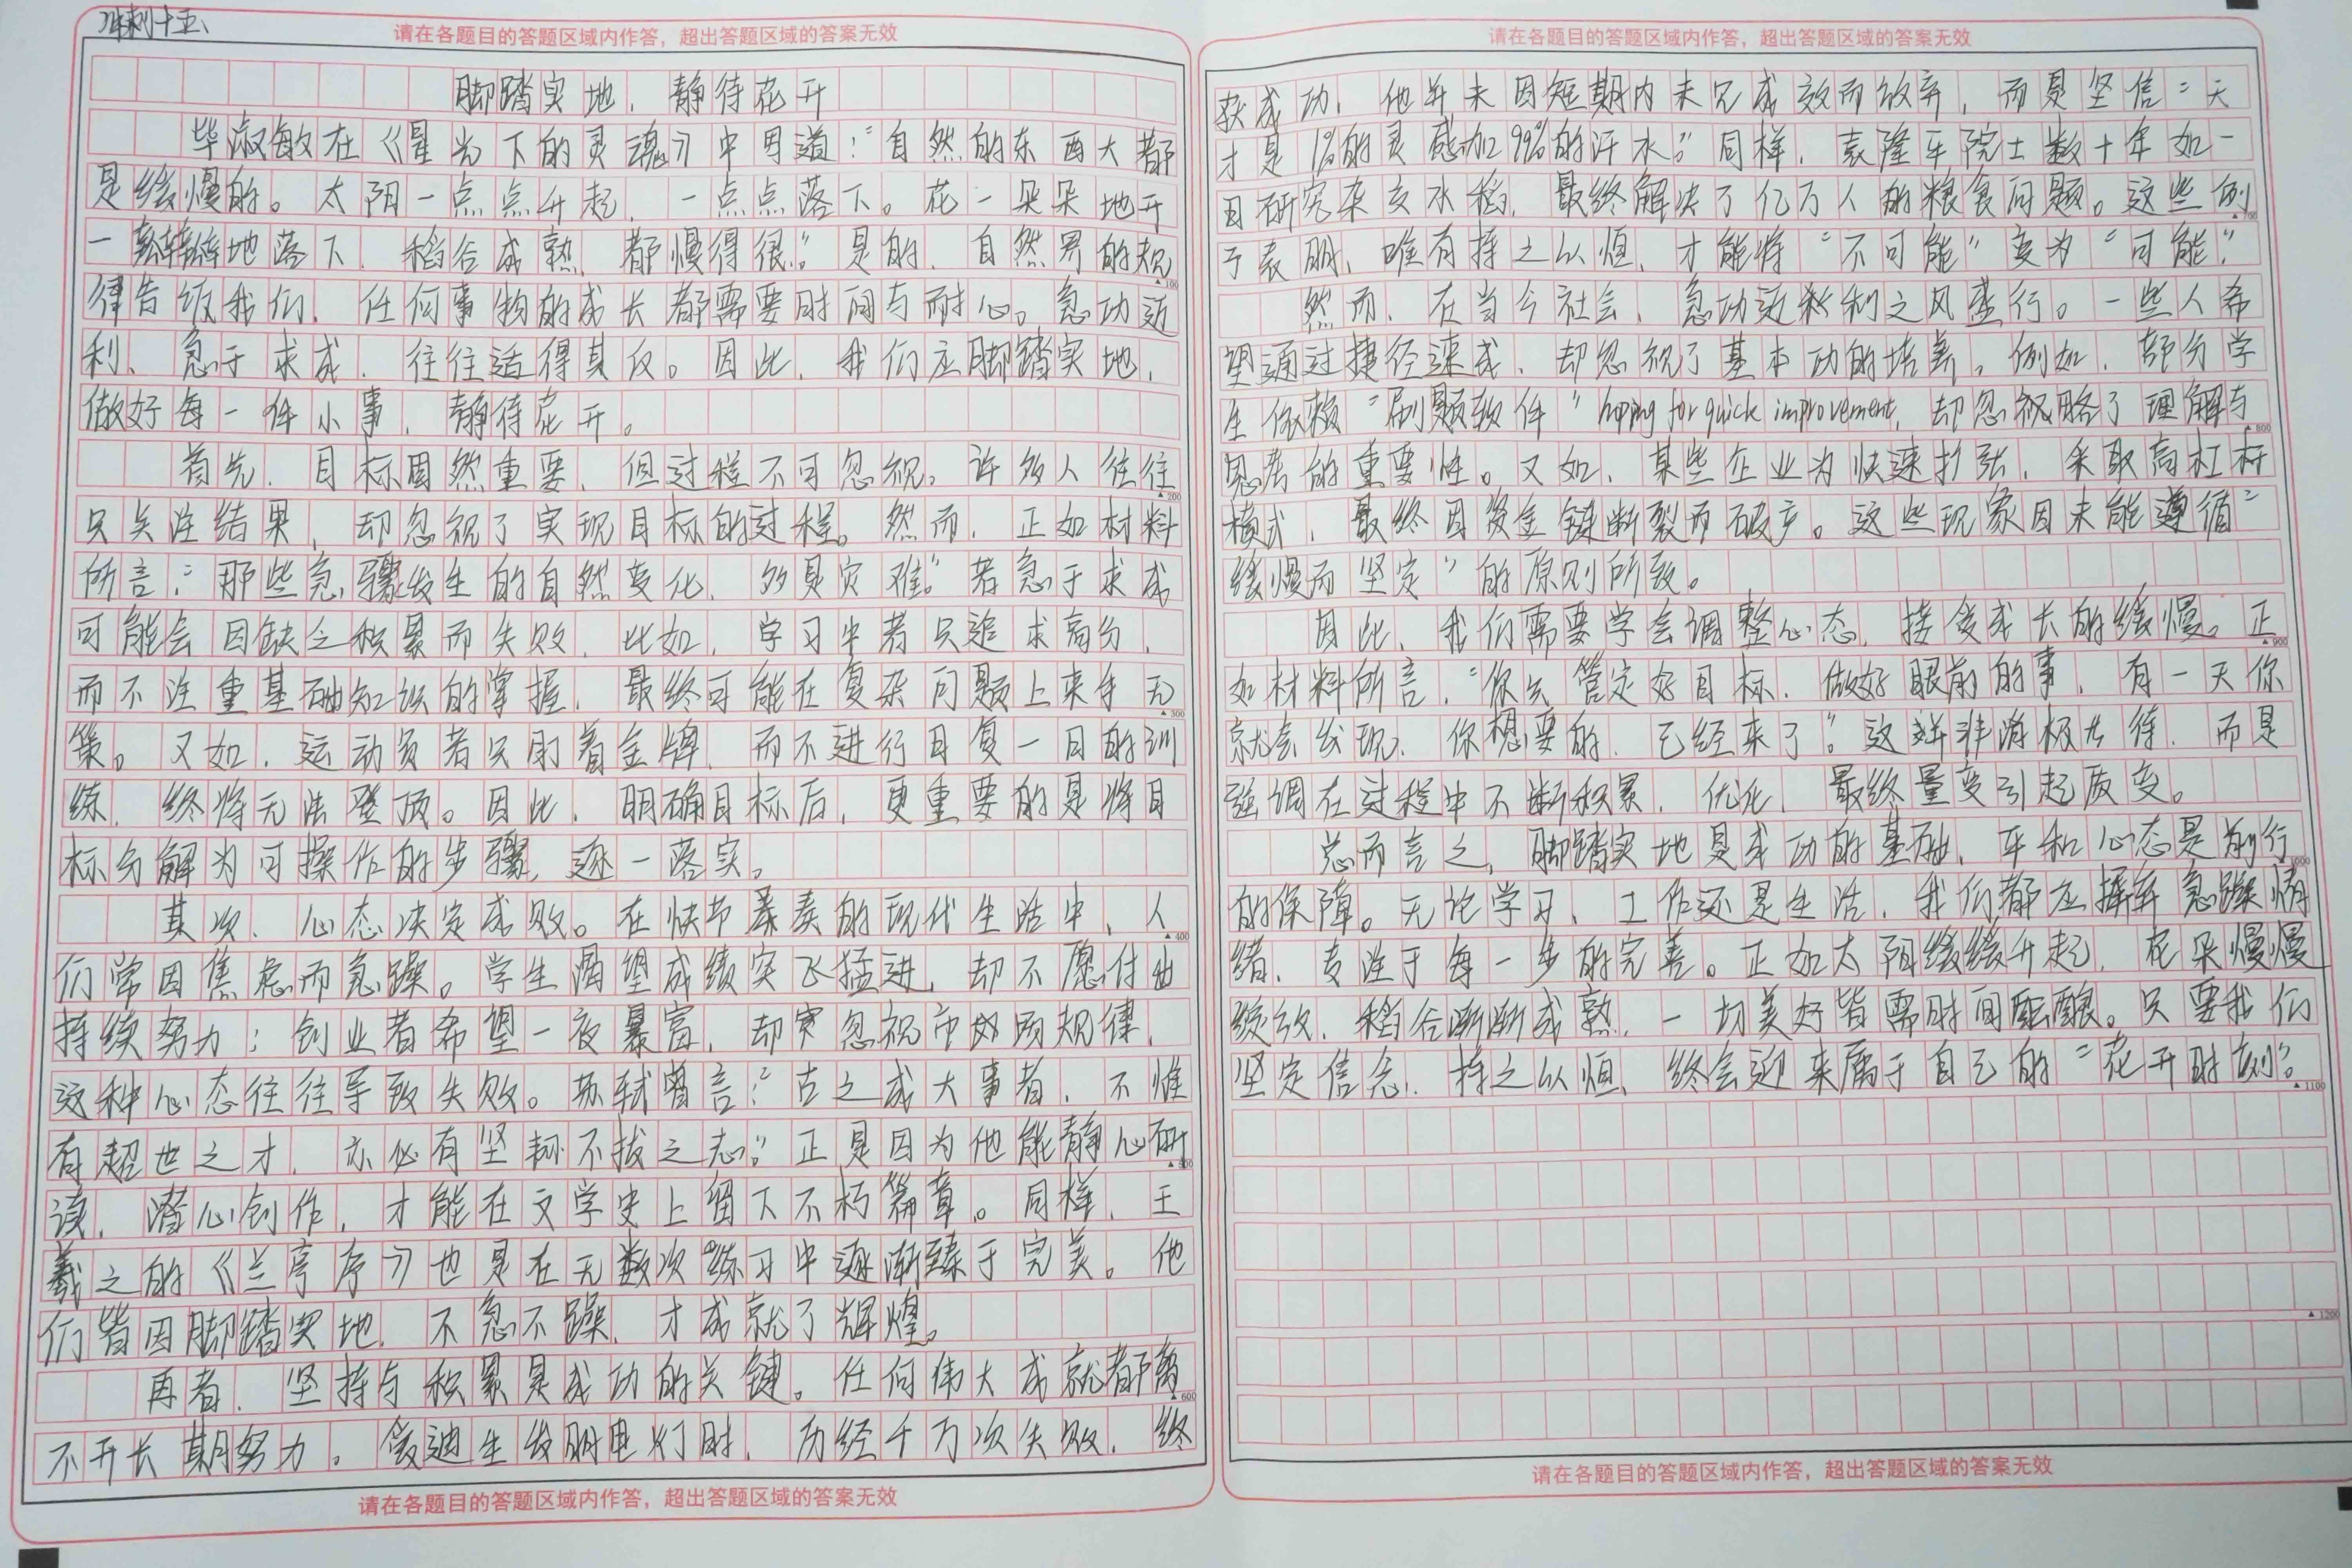 冲刺十五、
请在各题目的答题区域内作答，超出答题区域的答案无效
脚踏实地，静待花开
毕淑敏在《星光下的灵魂》中写道："自然的东西大都
是缓慢的。太阳一点点升起，一点点落下。花一朵朵地开
一瓣瓣地落下，稻谷成熟，都慢得很。"是的，自然界的规
律告诉我们，任何事物的成长都需要时间与耐心。急功近
利、急于求成，往往适得其反。因此，我们应脚踏实地，
做好每一件小事，静待花开。
首先，目标固然重要，但过程不可忽视。许多人往往
只关注结果，却忽视了实现目标的过程。然而，正如材料
所言："那些急骤发生的自然变化，多是灾难。"若急于求成
可能会因缺乏积累而失败，比如，学习中若只追求高分，
而不注重基础知识的掌握，最终可能在复杂问题上束手无
策。又如，运动员若只盯着金牌，而不进行日复一日的训
练，终将无法登顶。因此，明确目标后，更重要的是将目
标分解为可操作的步骤，逐一落实。
其次，心态决定成败。在快节奏的现代生活中，人
们常因焦虑而急躁。学生渴望成绩突飞猛进，却不愿付出
持续努力；创业者希望一夜暴富，却忽视市场规律，
这种心态往往导致失败。苏轼曾言："古之成大事者，不惟
有超世之才，亦必有坚韧不拔之志。"正是因为他能静心研
读，潜心创作，才能在文学史上留下不朽篇章。同样，王
羲之的《兰亭序》也是在无数次练习中逐渐臻于完美。他
们皆因脚踏实地，不急不躁，才成就了辉煌。
再者，坚持与积累是成功的关键。任何伟大成就都离
不开长期努力。爱迪生发明电灯时，历经千万次失败，终
请在各题目的答题区域内作答，超出答题区域的答案无效
请在各题目的答题区域内作答，超出答题区域的答案无效
获成功，他并未因短期内未见成效而放弃，而是坚信"天
才是1%的灵感加99%的汗水。"同样，袁隆平院士数十年如一
日研究杂交水稻，最终解决了亿万人的粮食问题。这些例
子表明，唯有持之以恒，才能将"不可能"变为"可能"
然而，在当今社会，急功近利之风盛行。一些人希
望通过捷径速成，却忽视了基本功的培养。例如，部分学
生依赖"刷题软件" hoping for quick improvement，却忽略了理解与
思考的重要性。又如，某些企业为快速扩张，采取高杠杆
模式，最终因资金链断裂而破产。这些现象因未能遵循"
缓慢而坚定"的原则所致。
因此，我们需要学会调整心态，接受成长的缓慢。正
如材料所言，"你只管定好目标，做好眼前的事，有一天你
就会发现，你想要的，已经来了。"这并非消极等待，而是
强调在过程中不断积累，优化，最终量变引起质变。
总而言之，脚踏实地是成功的基础，平和心态是前行
的保障。无论学习、工作还是生活，我们都应摒弃急躁情
绪，专注于每一步的完善。正如太阳缓缓升起，花朵慢慢
绽放，稻谷渐渐成熟，一切美好皆需时间酝酿。只要我们
坚定信念，持之以恒，终会迎来属于自己的"花开时刻"。
请在各题目的答题区域内作答，超出答题区域的答案无效